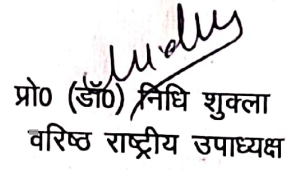 प्रो0 (डॉ0) निधि शुक्ला
वरिष्ठ राष्ट्रीय उपाध्यक्ष